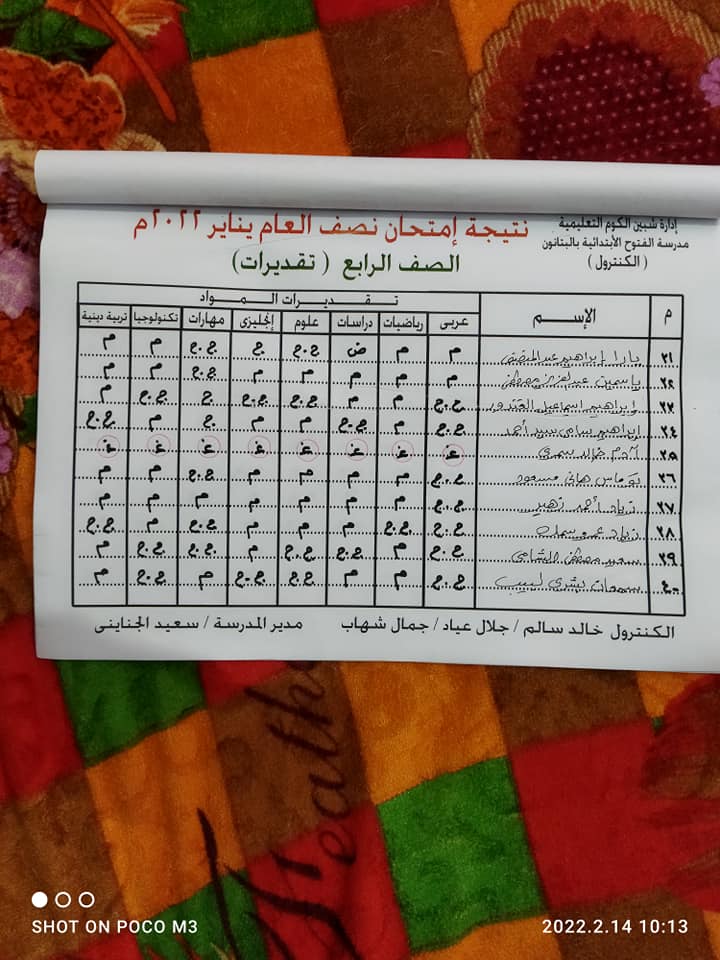 إدارة شبين الكوم التعليمية
مدرسة الفتوح الأبتدائية بالبتانون
( الكنترول )
نتيجة إمتحان نصف العام يناير ٢٠٢٢م
الصف الرابع ( تقديرات)
م الإسم تقديرات المواد
عربى رياضيات دراسات علوم إنجليزى مهارات تكنولوجيا تربية دينية
يارا إبراهيم م م ض ج.ج ج ج.ج م م
ياسمين م م م م م ج.ج م م
إبراهيم اسماعيل ج.ج م م ج.ج ج.ج ج ج.ج م
٢٤ إبراهيم سامى سيد أحمد ج.ج م ج.ج م ج م م ج.ج
٢٥ آدم خالد غ غ غ غ غ غ غ غ
٢٦ هانى مسعود ج.ج م م م م ج.ج م م
٢٧ زياد أحمد زهير ج.ج م م م م م م م
٢٨ زياد عمرو ج.ج ج.ج م م م ج.ج م ج.ج
٢٩ مصطفى الشامى ج.ج م ج.ج ج.ج م ج.ج ج.ج م
بشرى لبيب ج.ج م م ج.ج ج.ج م ج.ج م
الكنترول خالد سالم / جلال عياد / جمال شهاب مدير المدرسة / سعيد الجناينى
SHOT ON POCO M3
2022.2.14 10:13